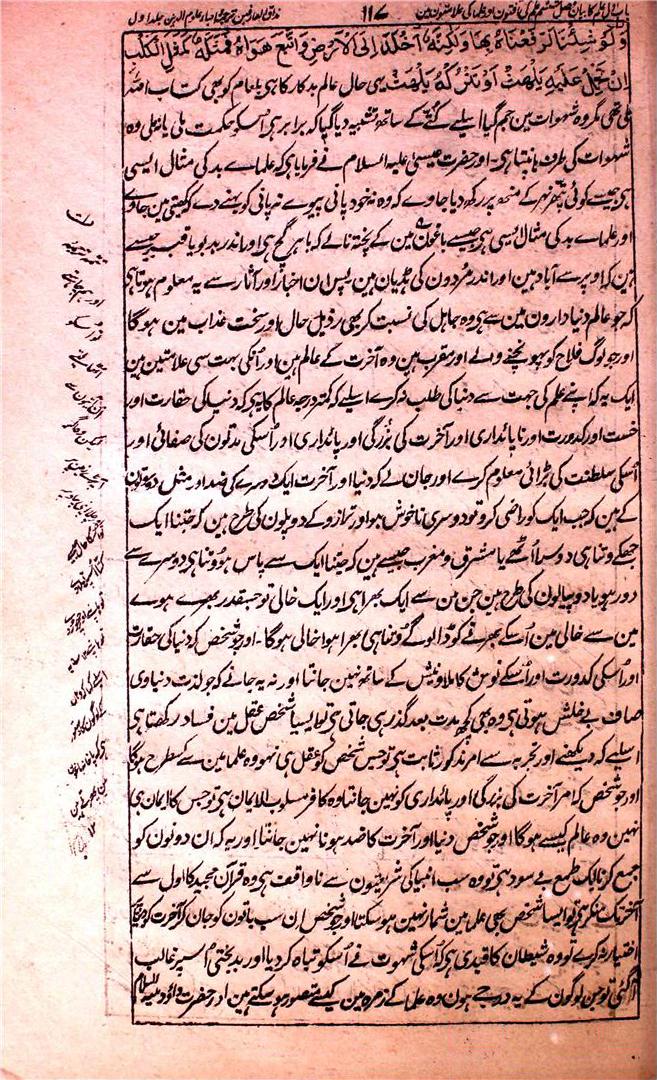 باب اول علم کا بیان فصل ششم علم کی آفتون اور علما کی علامتون مین ۱۱۷ مذاق العارفین ترجمہ احیاء علوم الدین جلد اول
وَلَوْ شِئْنَا لَرَفَعْنَاهُ بِهَا وَلٰكِنَّهُ اَخْلَدَ اِلَى الْاَرْضِ وَاتَّبَعَ هَوَاهُ فَمَثَلُهُ كَمَثَلِ الْكَلْبِ
اِنْ تَحْمِلْ عَلَيْهِ يَلْهَثْ اَوْ تَتْرُكْهُ يَلْهَثْ یہی حال عالم بدکار کا ہی بلعام کو بھی کتاب اللہ
ملی تھی مگر وہ شہوات مین جم گیا اسلیے کتے کے ساتھ تشبیہ دیا گیا کہ برابر ہی اسکو حکمت ملی یا نہ ملی وہ
شہوات کی طرف ہانپتا ہی۔ اور حضرت عیسیٰ علیہ السلام نے فرمایا ہی کہ علماے بد کی مثال ایسی
ہی جیسے کوئی پتھر نہر کے منھ پر رکھ دیا جاوے کہ وہ نہ خود پانی پیوے نہ پانی کو بہنے دے کہ کھیتی مین جاوے
اور علماے بد کی مثال ایسی ہی جیسے باغون مین کے پختہ نالے کہ باہر گچ ہی اور اندر بدبو یا قبر جیسے
ہین کہ اوپر سے آباد ہین اور اندر مردون کی ہڈیان ہین پس ان اخبار اور آثار سے یہ معلوم ہوتا ہی
کہ جو عالم دنیا دارون مین سے ہی وہ جاہل کی نسبت کر بھی رذیل حال اور سخت عذاب مین ہوگا
اور جو لوگ فلاح کو پہونچنے والے اور مقرب ہین وہ آخرت کے عالم ہین اور انکی بہت سی علامتین ہین
ایک یہ کہ اپنے علم کی جہت سے دنیا کی طلب نہ کرے اسلیے کہ کمتر درجہ عالم کا یہ ہی کہ دنیا کی حقارت اور
خست اور کدورت اور ناپائداری اور آخرت کی بزرگی اور پائداری اور اُسکی مدتون کی صفائی اور
اُسکی سلطنت کی بڑائی معلوم کرے اور جان لے کہ دنیا اور آخرت ایک دوسرے کی ضد اور مثل دو سوتون
کے ہین کہ جب ایک کو راضی کرو تو دوسری ناخوش ہو اور ترازو کے دو پلون کی طرح ہین کہ جتنا ایک
جھکے وتنا ہی دوسرا اُٹھے یا مشرق و مغرب جیسے ہین کہ جتنا ایک سے پاس ہو وتنا ہی دوسرے سے
دور ہو یا دو پیالون کی طرح ہین جن مین سے ایک بھرا ہی اور ایک خالی تو جسقدر بھرے ہوے
مین سے خالی مین اُسکے بھرنے کو ڈالو گے وتنا ہی بھرا ہوا خالی ہوگا۔ اور جو شخص کہ دنیا کی حقارت
اور اُسکی کدورت اور اُسکے نوش کا ملا ونیش کے ساتھ نہین جانتا اور نہ یہ جانے کہ جو لذت دنیاوی
صاف بے خلش ہوتی ہی وہ بھی کچھ مدت بعد گذر ہی جاتی ہی تو ایسا شخص عقل مین فساد رکھتا ہی
اسلیے کہ دیکھنے اور تجربہ سے امر مذکور ثابت ہی تو جس شخص کو عقل ہی نہو وہ علما مین سے کسطرح ہوگا
اور جو شخص کہ امر آخرت کی بزرگی اور پائداری کو نہین جانتا وہ کافر مسلوب الایمان ہی تو جس کا ایمان ہی
نہین وہ عالم کیسے ہوگا اور جو شخص دنیا اور آخرت کا ضد ہونا نہین جانتا اور یہ کہ ان دونون کو
جمع کرنا ایک طمع بے سود ہی تو وہ سب انبیا کی شریعتون سے ناواقف ہی وہ قرآن مجید کا اول سے
آخر تک منکر ہی تو ایسا شخص بھی علما مین شمار نہین ہو سکتا اور جو شخص ان سب باتون کو جان کر آخرت کو دنیا پر
اختیار نہ کرے تو وہ شیطان کا قیدی ہی کہ اُسکی شہوت نے اُسکو تباہ کر دیا اور بدبختی اُسپر غالب
آگئی تو جن لوگون کے یہ درجے ہون وہ علما کے زمرہ مین کیسے متصور ہو سکتے ہین اور حضرت داؤد علیہ السلام